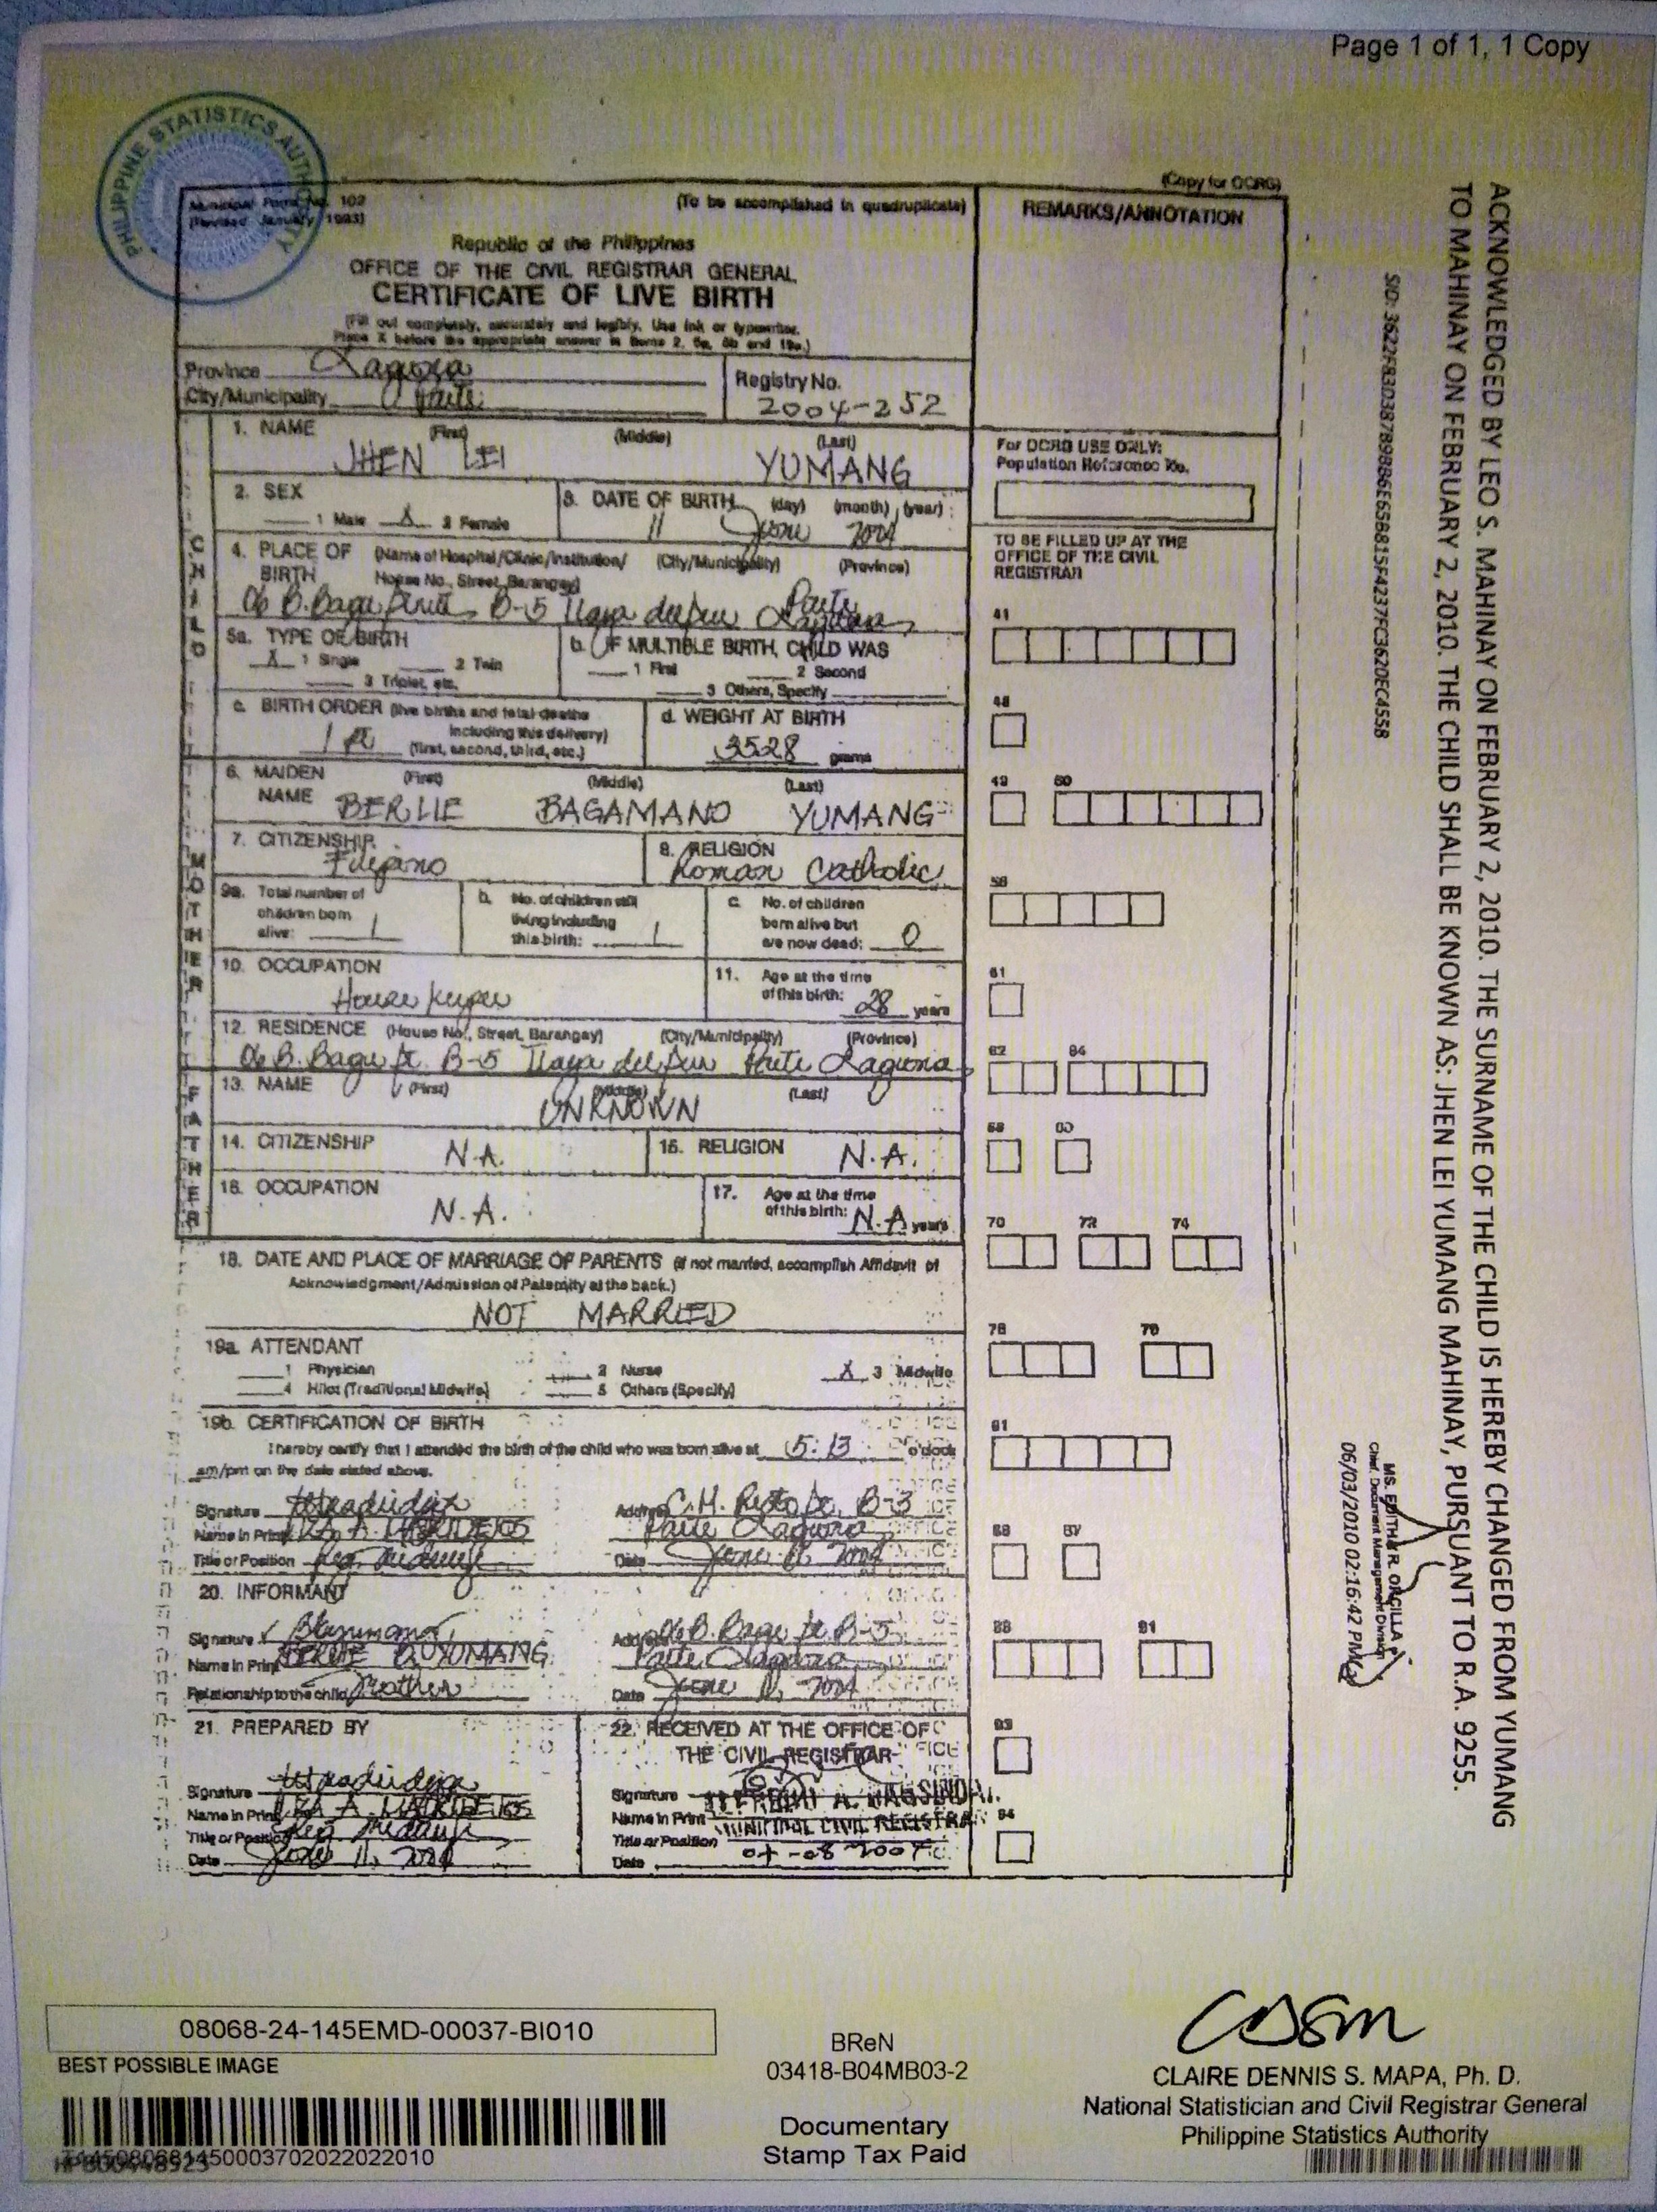 Page 1 of 1, 1 Copy
PHILIPPINE STATISTICS AUTHORITY
(Copy for OCRG)
Municipal Form No. 102
(Revised January 1993)
(To be accomplished in quadruplicate)
REMARKS/ANNOTATION
Republic of the Philippines
OFFICE OF THE CIVIL REGISTRAR GENERAL
CERTIFICATE OF LIVE BIRTH
(Fill out completely, accurately and legibly. Use ink or typewriter.
Place X before the appropriate answer in Items 2, 5a, 5b and 19a.)
Province Laguna
City/Municipality Paete
Registry No.
2004-252
CHILD
1. NAME (First) (Middle) (Last)
JHEN LEI YUMANG
For OCRG USE ONLY:
Population Reference No.
2. SEX
1 Male X 2 Female
3. DATE OF BIRTH (day) (month) (year)
11 June 2004
TO BE FILLED UP AT THE
OFFICE OF THE CIVIL
REGISTRAR
4. PLACE OF BIRTH (Name of Hospital/Clinic/Institution/ (City/Municipality) (Province)
House No., Street, Barangay)
B-5 Ilaya del Sur Paete Laguna
41
5a. TYPE OF BIRTH
X 1 Single 2 Twin
3 Triplet, etc.
b. IF MULTIPLE BIRTH, CHILD WAS
1 First 2 Second
3 Others, Specify
c. BIRTH ORDER (live births and fetal deaths
including this delivery)
(first, second, third, etc.)
d. WEIGHT AT BIRTH
3528 grams
48
MOTHER
6. MAIDEN NAME (First) (Middle) (Last)
BERLIE BAGAMANO YUMANG
49
7. CITIZENSHIP
Filipino
8. RELIGION
Roman Catholic
9a. Total number of
children born
alive: 1
b. No. of children still
living including
this birth: 1
c. No. of children
born alive but
are now dead: 0
10. OCCUPATION
House keeper
11. Age at the time
of this birth: 28 years
61
12. RESIDENCE (House No., Street, Barangay) (City/Municipality) (Province)
B-5 Ilaya del Sur Paete Laguna
62 64
FATHER
13. NAME (First) (Middle) (Last)
UNKNOWN
14. CITIZENSHIP N.A.
15. RELIGION N.A.
16. OCCUPATION
N.A.
17. Age at the time
of this birth: N.A years
70 72 74
18. DATE AND PLACE OF MARRIAGE OF PARENTS (if not married, accomplish Affidavit of
Acknowledgment/Admission of Paternity at the back.)
NOT MARRIED
19a. ATTENDANT
1 Physician 2 Nurse X 3 Midwife
4 Hilot (Traditional Midwife) 5 Others (Specify)
19b. CERTIFICATION OF BIRTH
I hereby certify that I attended the birth of the child who was born alive at 5:13 o'clock
am/pm on the date stated above.
Signature
Name in Print
Title or Position Reg. Midwife
Address B-3
Paete Laguna
Date June 11, 2004
20. INFORMANT
Signature
Name in Print BERLIE B. YUMANG
Relationship to the child Mother
Address B-5
Paete Laguna
Date June 11, 2004
88 91
21. PREPARED BY
Signature
Name in Print
Title or Position Reg. Midwife
Date June 11, 2004
22. RECEIVED AT THE OFFICE OF
THE CIVIL REGISTRAR
Signature
Name in Print
Title or Position MUNICIPAL CIVIL REGISTRAR
Date
93
94
ACKNOWLEDGED BY LEO S. MAHINAY ON FEBRUARY 2, 2010. THE SURNAME OF THE CHILD IS HEREBY CHANGED FROM YUMANG
TO MAHINAY ON FEBRUARY 2, 2010. THE CHILD SHALL BE KNOWN AS: JHEN LEI YUMANG MAHINAY, PURSUANT TO R.A. 9255.
MS. EDITHA R. ORCILLA
Chief, Document Management Division
06/03/2010 02:16:42 PM
08068-24-145EMD-00037-BI010
BEST POSSIBLE IMAGE
BReN
03418-B04MB03-2
Documentary
Stamp Tax Paid
CLAIRE DENNIS S. MAPA, Ph. D.
National Statistician and Civil Registrar General
Philippine Statistics Authority